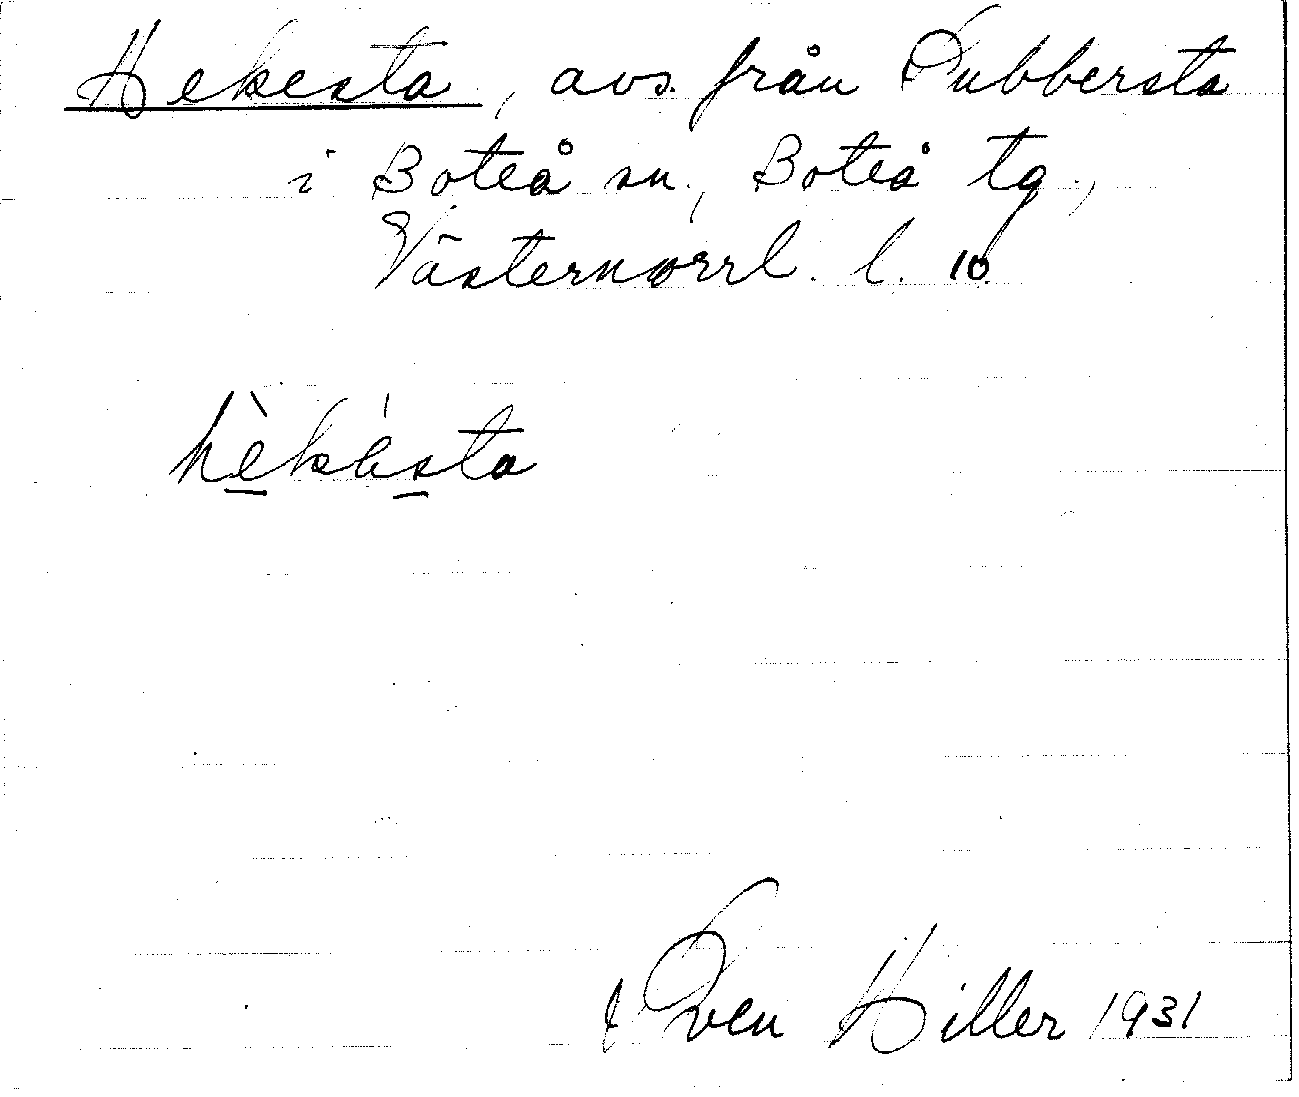 Hekesta, avs. från Dubbersta
i Boteå sn., Boteå tg.,
Västernorrl. l. 10.
hèkésta
Sven Hiller 1931